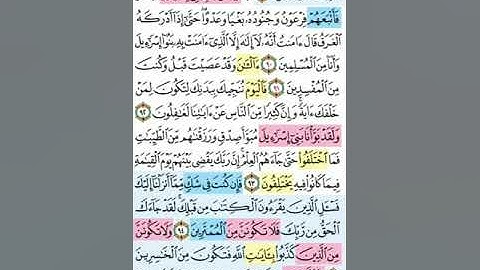 فَأَتْبَعَهُمْ فِرْعَوْنُ وَجُنُودُهُۥ بَغْيًا وَعَدْوًا ۖ حَتَّىٰٓ إِذَآ أَدْرَكَهُ
ٱلْغَرَقُ قَالَ ءَامَنتُ أَنَّهُۥ لَآ إِلَٰهَ إِلَّا ٱلَّذِىٓ ءَامَنَتْ بِهِۦ بَنُوٓا۟ إِسْرَٰٓءِيلَ
وَأَنَا۠ مِنَ ٱلْمُسْلِمِينَ ٩٠ ءَآلْـَٰٔنَ وَقَدْ عَصَيْتَ قَبْلُ وَكُنتَ
مِنَ ٱلْمُفْسِدِينَ ٩١ فَٱلْيَوْمَ نُنَجِّيكَ بِبَدَنِكَ لِتَكُونَ لِمَنْ
خَلْفَكَ ءَايَةً ۚ وَإِنَّ كَثِيرًا مِّنَ ٱلنَّاسِ عَنْ ءَايَٰتِنَا لَغَٰفِلُونَ ٩٢
وَلَقَدْ بَوَّأْنَا بَنِىٓ إِسْرَٰٓءِيلَ مُبَوَّأَ صِدْقٍ وَرَزَقْنَٰهُم مِّنَ ٱلطَّيِّبَٰتِ
فَمَا ٱخْتَلَفُوا۟ حَتَّىٰ جَآءَهُمُ ٱلْعِلْمُ ۚ إِنَّ رَبَّكَ يَقْضِى بَيْنَهُمْ يَوْمَ ٱلْقِيَٰمَةِ
فِيمَا كَانُوا۟ فِيهِ يَخْتَلِفُونَ ٩٣ فَإِن كُنتَ فِى شَكٍّ مِّمَّآ أَنزَلْنَآ إِلَيْكَ
فَسْـَٔلِ ٱلَّذِينَ يَقْرَءُونَ ٱلْكِتَٰبَ مِن قَبْلِكَ ۚ لَقَدْ جَآءَكَ
ٱلْحَقُّ مِن رَّبِّكَ فَلَا تَكُونَنَّ مِنَ ٱلْمُمْتَرِينَ ٩٤ وَلَا تَكُونَنَّ
مِنَ ٱلَّذِينَ كَذَّبُوا۟ بِـَٔايَٰتِ ٱللَّهِ فَتَكُونَ مِنَ ٱلْخَٰسِرِينَ